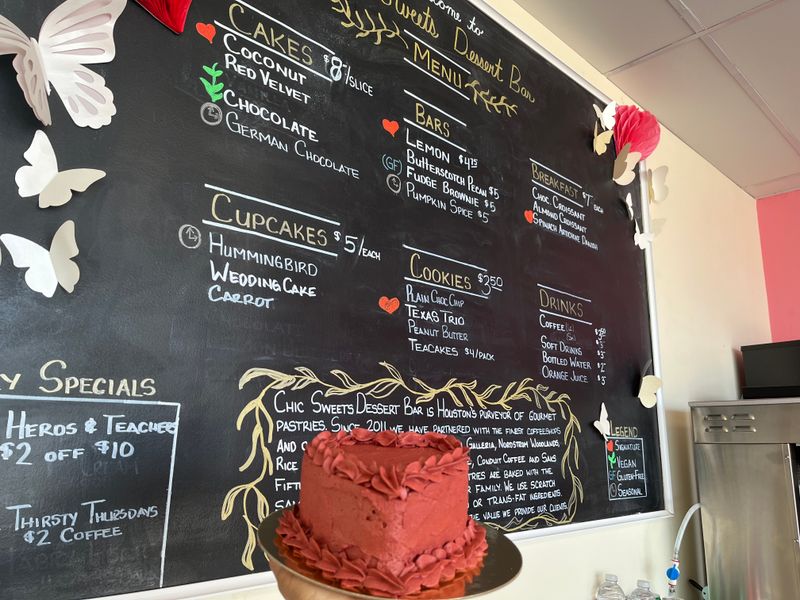 come to
Sweets Dessert Bar
Menu
Cakes $8/slice
Coconut
Red Velvet
Chocolate
German Chocolate
Cupcakes $5/each
Hummingbird
Wedding Cake
Carrot
Bars
Lemon $4.75
Butterscotch Pecan $5
(GF) Fudge Brownie $5
Pumpkin Spice $5
Cookies $3.50
Plain Choc Chip
Texas Trio
Peanut Butter
Teacakes $4/pack
Breakfast $7 each
Choc. Croissant
Almond Croissant
Spinach Artichoke Danish
Drinks
Coffee
Soft Drinks
Bottled Water
Orange Juice $5
y Specials
Heros & Teachers
$2 off $10
Thirsty Thursdays
$2 Coffee
Chic Sweets Dessert Bar is Houston's purveyor of gourmet
pastries. Since 2011, we have partnered with the finest coffeeshops
and Galleria, Nordstrom Woodlands,
Rice Conduit Coffee and Saks
Fift tries are baked with the
family. We use scratch
or trans-fat ingredients.
e value we provide our clients.
Legend
Signature
Vegan
GF Gluten-Free
Seasonal